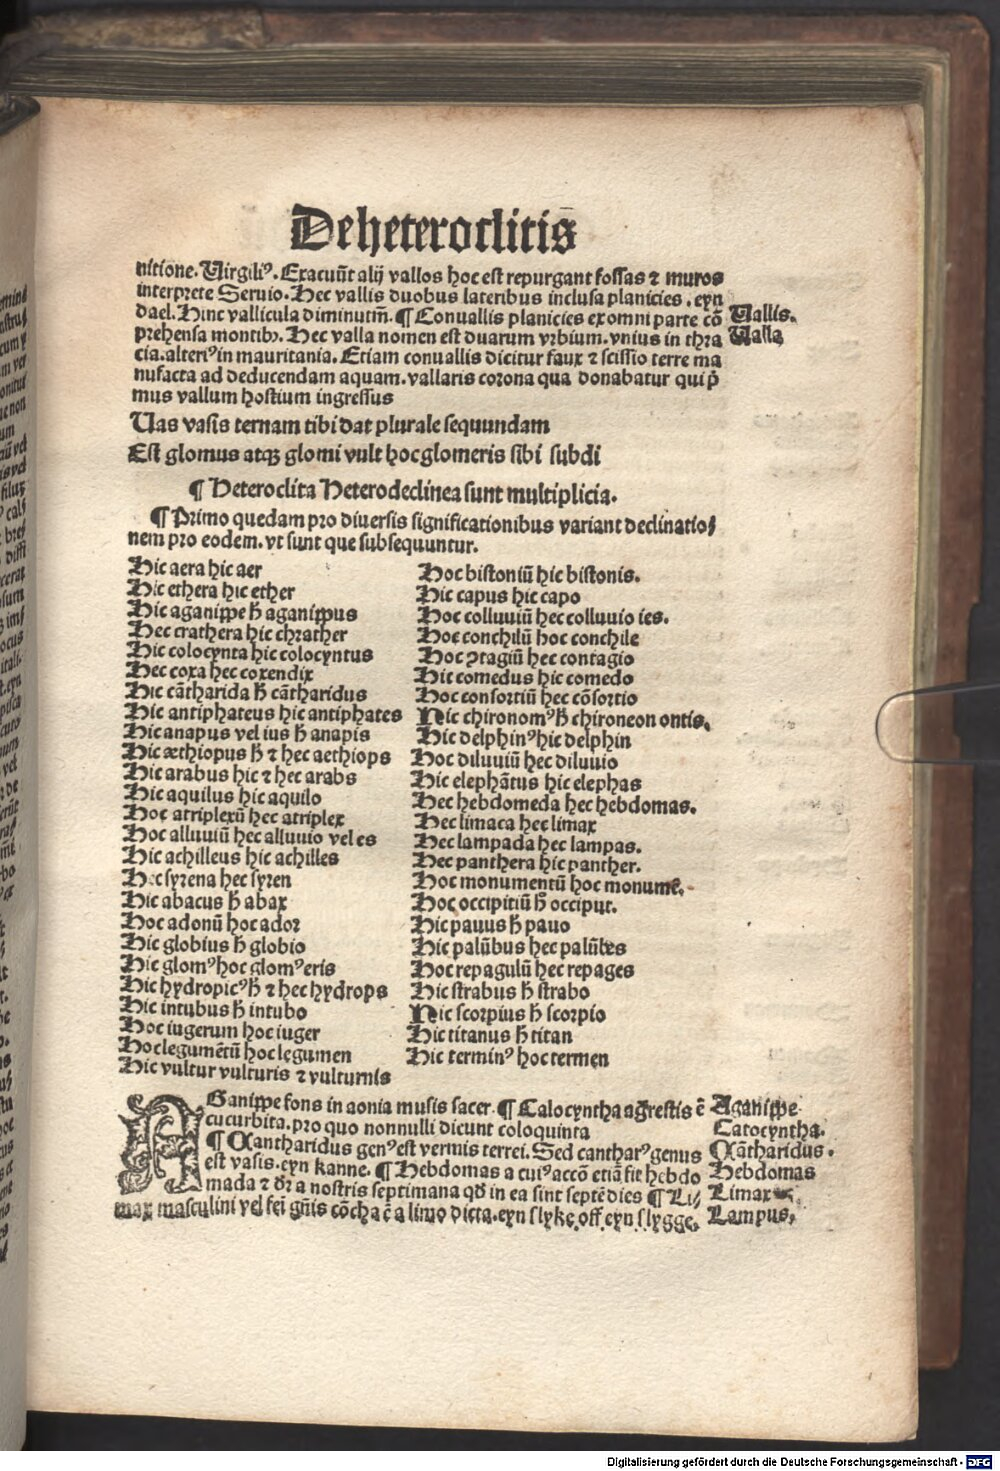 De heteroclitis
nitione. Virgiliꝰ. Exacuūt alij vallos hoc est repurgant fossas ⁊ muros
interprete Seruio. Hec vallis duobus lateribus inclusa planicies. eyn
dael. Hinc vallicula diminutiū. ¶ Conuallis planicies ex omni parte cō Vallis.
prehensa montibꝫ. Hec valla nomen est duarum vrbium. vnius in thra Valla
cia. alteriꝰ in mauritania. Etiam conuallis dicitur faux ⁊ scissio terre ma
nufacta ad deducendam aquam. vallaris corona qua donabatur qui p̄
mus vallum hostium ingressus
Uas vasis ternam tibi dat plurale sequundam
Est glomus atqꝫ glomi vult hoc glomeris sibi subdi
¶ Heteroclita Heterodeclinea sunt multiplicia.
¶ Primo quedam pro diuersis significationibus variant declinatio/
nem pro eodem. vt sunt que subsequuntur.
Hic aera hic aer
Hic ethera hic ether
Hic aganippe h̄ aganippus
Hec crathera hic chrather
Hic colocynta hic colocyntus
Hec coxa hec coxendix
Hic cātharida h̄ cātharidus
Hic antiphateus hic antiphates
Hic anapus vel ius h̄ anapis
Hic æthiopus h̄ ⁊ hec aethiops
Hic arabus hic ⁊ hec arabs
Hic aquilus hic aquilo
Hoc atriplexū hec atriplex
Hoc alluuiū hec alluuio vel es
Hic achilleus hic achilles
Hec syrena hec syren
Hic abacus h̄ abax
Hoc adonū hoc ador
Hic globius h̄ globio
Hic glomꝰ hoc glomꝰ eris
Hic hydropicꝰ h̄ ⁊ hec hydrops
Hic intubus h̄ intubo
Hoc iugerum hoc iuger
Hoc legumētū hoc legumen
Hic vultur vulturis ⁊ vulturnis
Hoc bistoniū hic bistonis.
Hic capus hic capo
Hoc colluuiū hec colluuio ies.
Hoc conchilū hoc conchile
Hoc ꝯtagiū hec contagio
Hic comedus hic comedo
Hoc consortiū hec cōsortio
Nic chironomꝰ h̄ chironeon ontis.
Hic delphinꝰ hic delphin
Hoc diluuiū hec diluuio
Hic elephātus hic elephas
Hec hebdomeda hec hebdomas.
Hec limaca hec limax
Hec lampada hec lampas.
Hec panthera hic panther.
Hoc monumentū hoc monumē.
Hoc occipitiū h̄ occiput.
Hic pauus h̄ pauo
Hic palūbus hec palūbes
Hoc repagulū hec repages
Hic strabus h̄ strabo
Nic scorpius h̄ scorpio
Hic titanus h̄ titan
Hic terminꝰ hoc termen
AGanippe fons in aonia musis sacer. ¶ Calocyntha agrestis ē Aganippe
cucurbita. pro quo nonnulli dicunt coloquinta Catocyntha.
¶ Cantharidus genꝰ est vermis terrei. Sed cantharꝰ genus Cātharidus.
est vasis. eyn kanne. ¶ Hebdomas a cuiꝰ accō etiā fit hebdo Hebdomas
mada ⁊ dr̄ a nostris septimana qd̄ in ea sint septē dies ¶ Li/ Limax
max masculini vel fei gn̄is cōcha ē a limo dicta. eyn slyke. off. eyn slygge. Lampus,
Digitalisierung gefördert durch die Deutsche Forschungsgemeinschaft - DFG